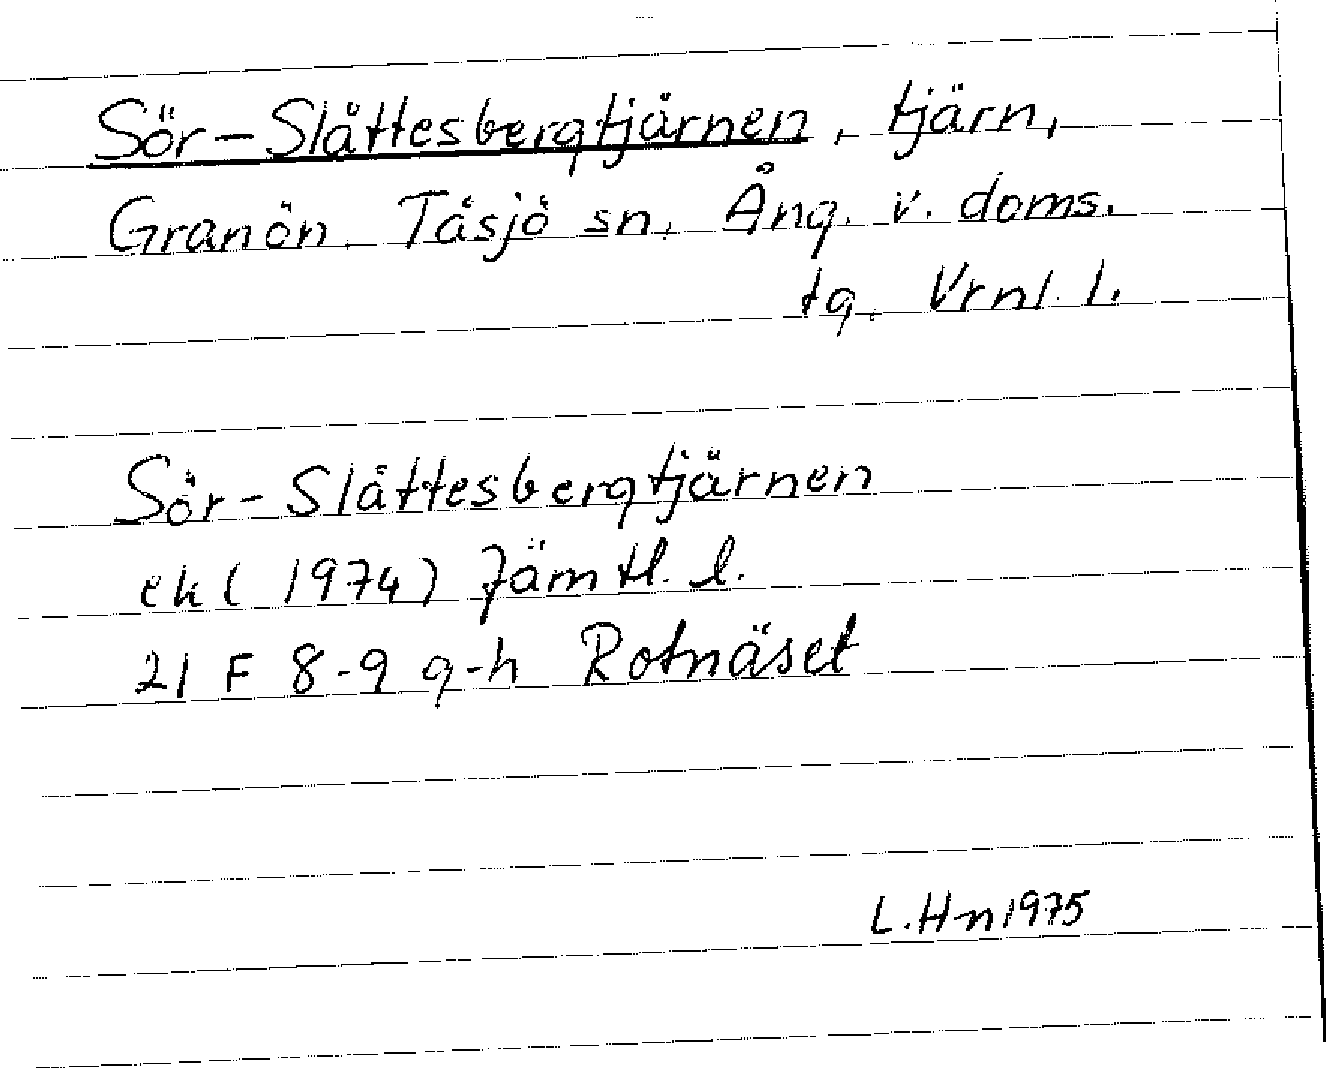 Sör-Slåttesbergtjärnen, tjärn,
Granön. Tåsjö sn. Ång. v. doms.
tg. Vrnl. l.
Sör-Slåttesbergtjärnen
ek (1974) Jämtl. l.
21 F 8-9 g-h Rotnäset
L.Hn 1975